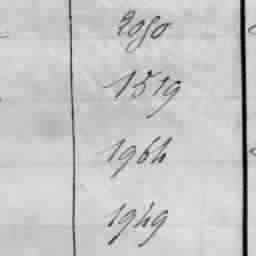 2050
1519
1964
1949